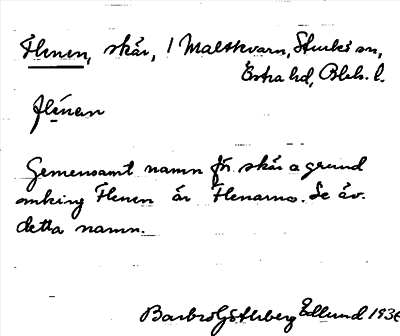 Flenen, skär, / Malekvarn, Sturkö sn,
Östra hd, Blek. l.
flénen
Gemensamt namn för skär o grund
omkring Flenen är Flenarna. Se äv.
detta namn.
Barbro Götherberg Edlund 1936